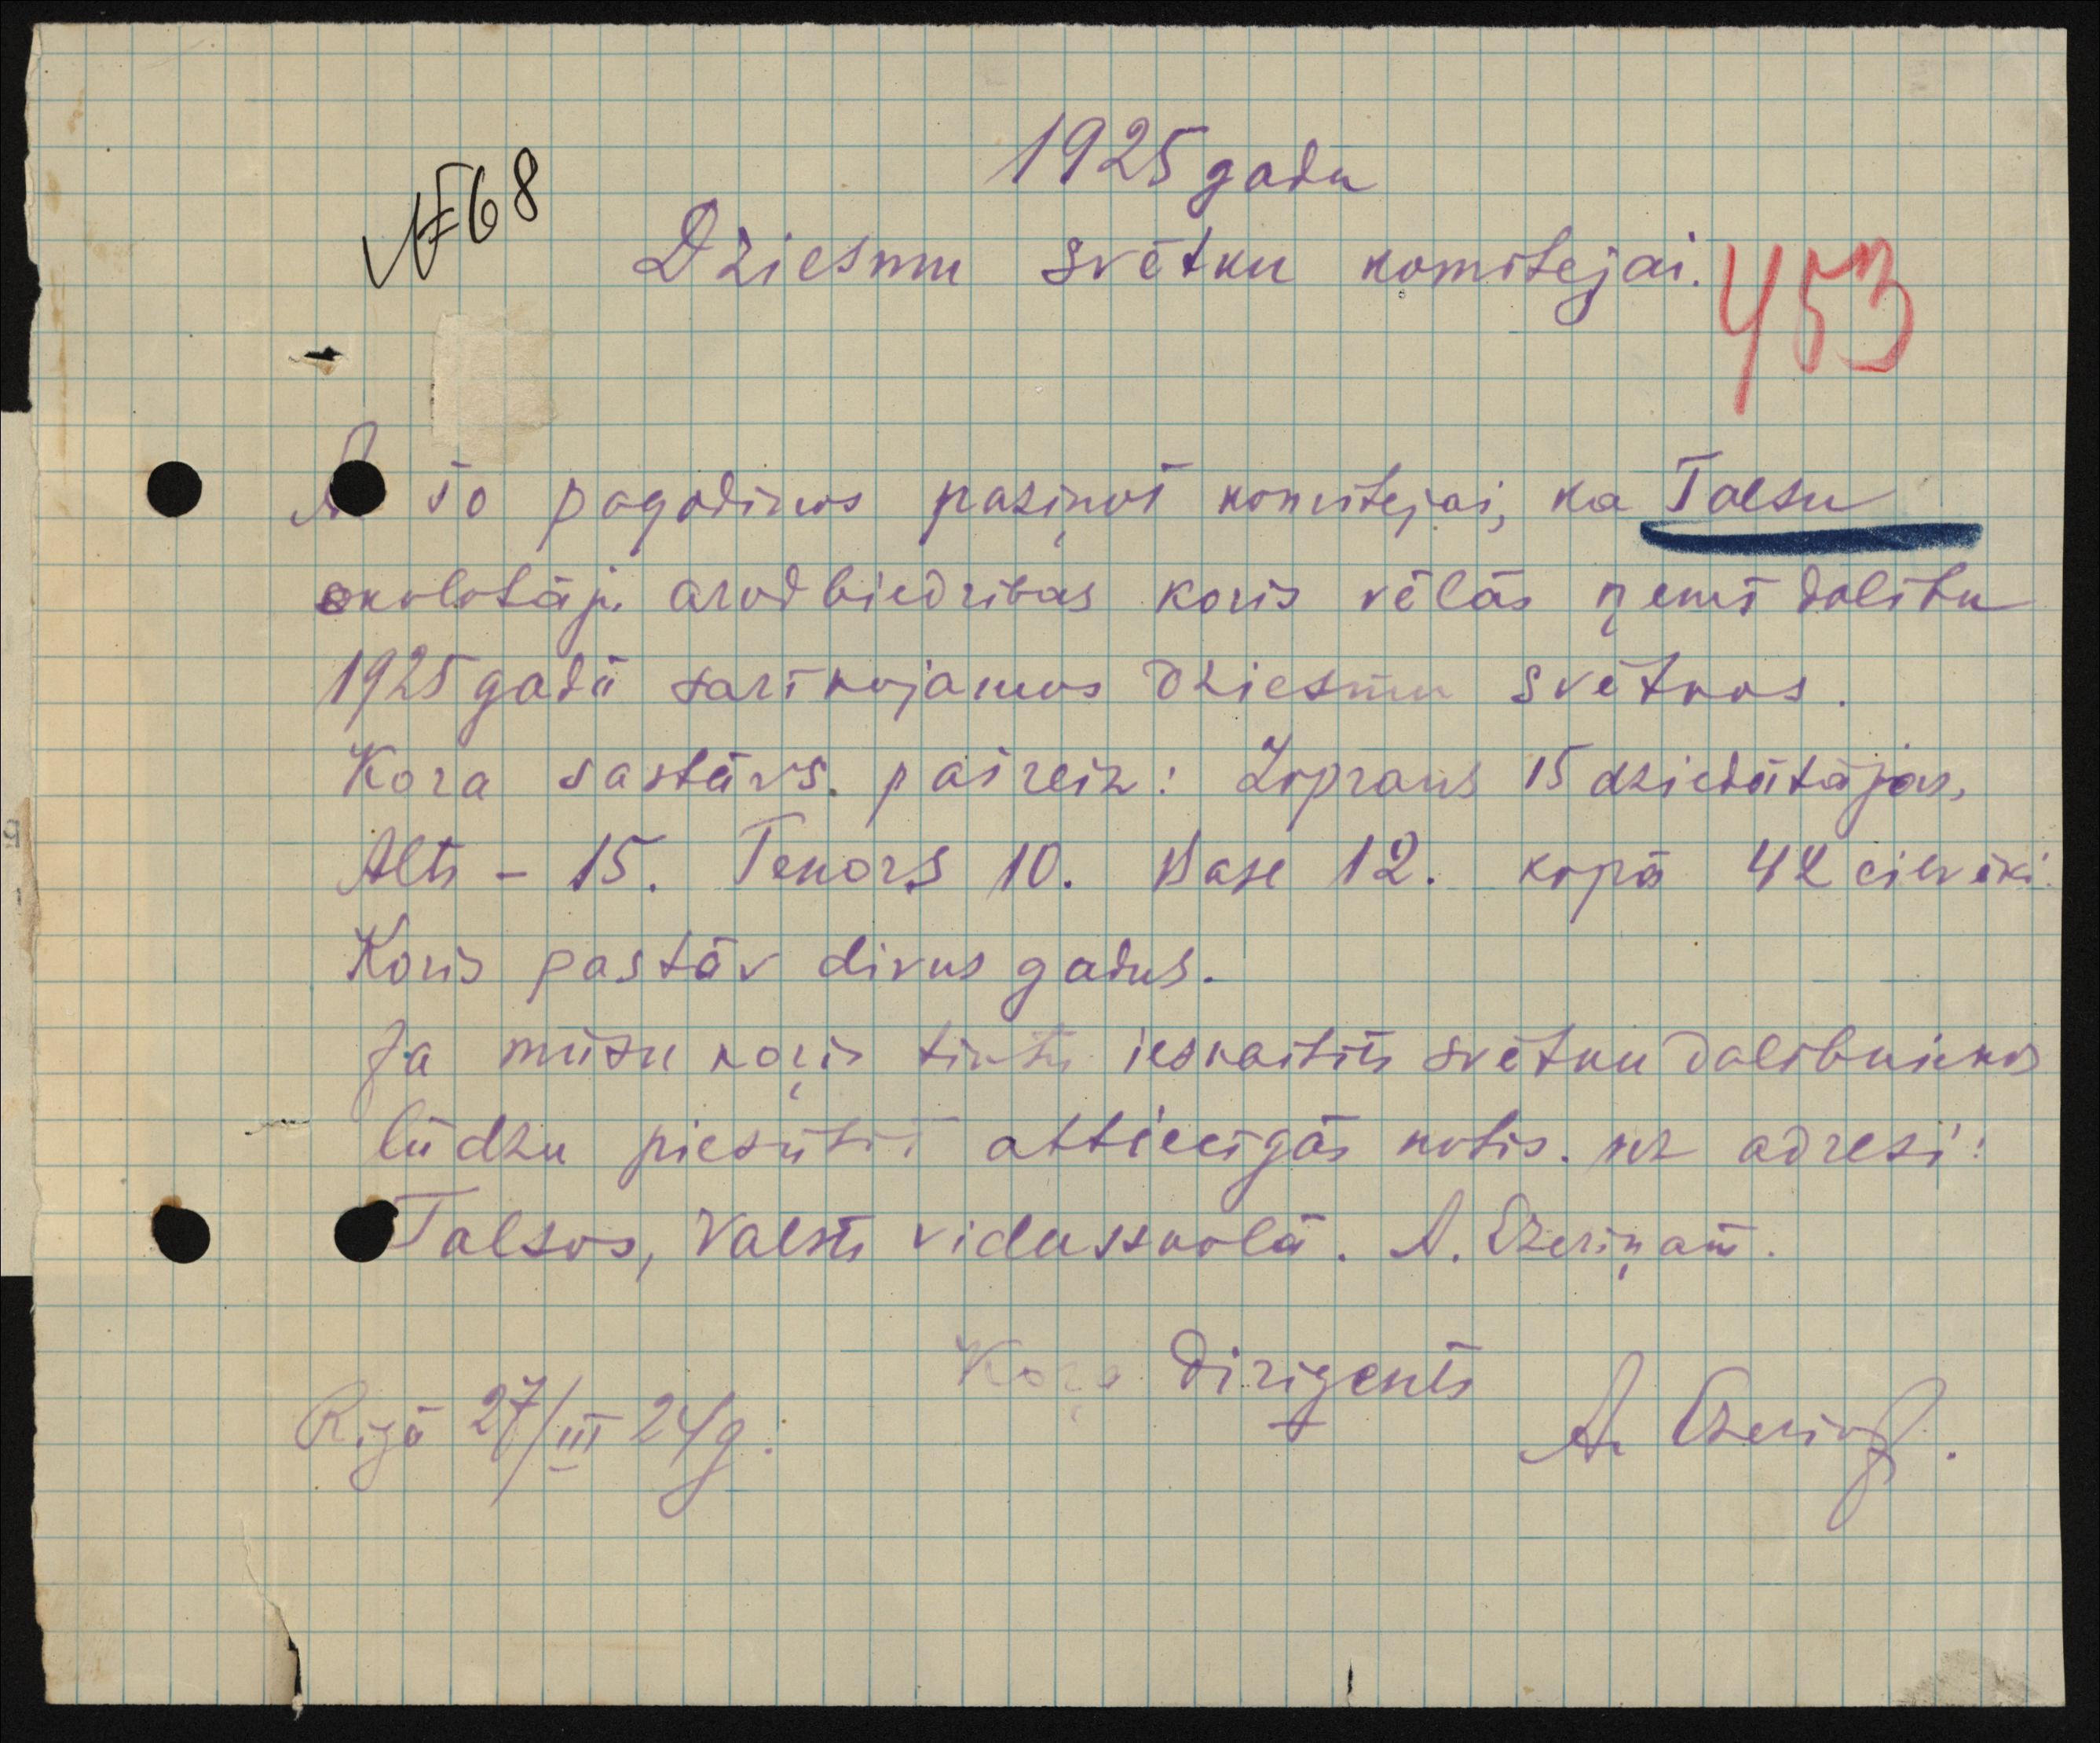 1925 gada
№ 68
Dziesmu svētku komitejai.
453
Ar šo pagodinos paziņot komitejai, ka Talsu
skolotāju arodbiedrības koris vēlās ņemt dalību
1925 gadā sarīkojamos Dziesmu svētkos.
Kora sastāvs pašreiz: Soprans 15 dziedātājas,
Alts - 15. Tenors 10. Base 12. kopā 42 cilvēki.
Koris pastāv divus gadus.
Ja mūsu koŗis tiktu ieskaitīts svētku dalībniekos
lūdzu piesūtīt attiecīgās notis. uz adresi:
Talsos, Valsts vidusskolā. A. Ezeriņam.
Koŗa Dirigents
A. Ezeriņš.
Rīgā 27/III 24g.